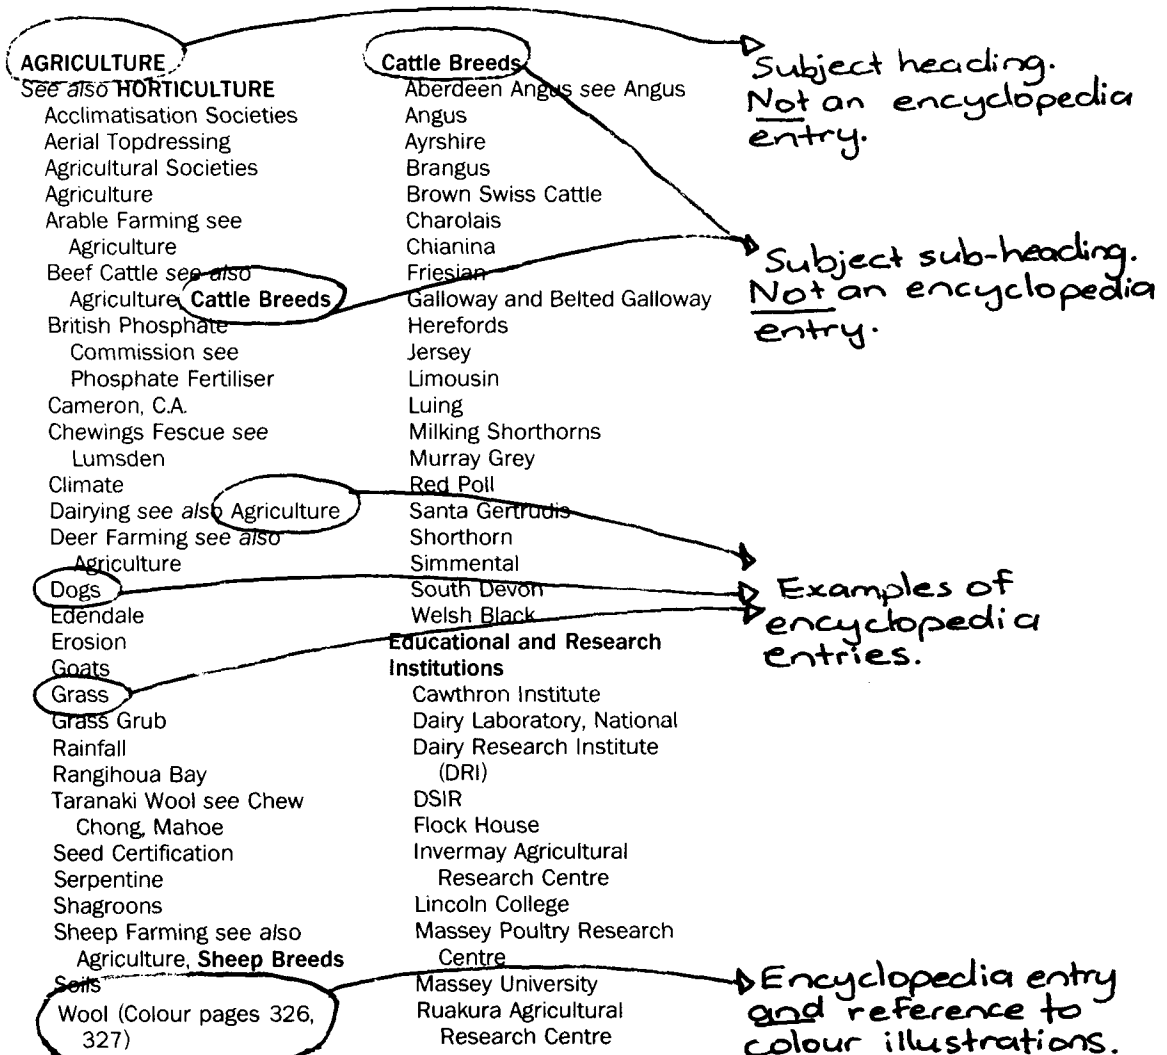 AGRICULTURE
See also HORTICULTURE
Acclimatisation Societies
Aerial Topdressing
Agricultural Societies
Agriculture
Arable Farming see
Agriculture
Beef Cattle see also
Agriculture, Cattle Breeds
British Phosphate
Commission see
Phosphate Fertiliser
Cameron, C.A.
Chewings Fescue see
Lumsden
Climate
Dairying see also Agriculture
Deer Farming see also
Agriculture
Dogs
Edendale
Erosion
Goats
Grass
Grass Grub
Rainfall
Rangihoua Bay
Taranaki Wool see Chew
Chong, Mahoe
Seed Certification
Serpentine
Shagroons
Sheep Farming see also
Agriculture, Sheep Breeds
Soils
Wool (Colour pages 326,
327)
Cattle Breeds
Aberdeen Angus see Angus
Angus
Ayrshire
Brangus
Brown Swiss Cattle
Charolais
Chianina
Friesian
Galloway and Belted Galloway
Herefords
Jersey
Limousin
Luing
Milking Shorthorns
Murray Grey
Red Poll
Santa Gertrudis
Shorthorn
Simmental
South Devon
Welsh Black
Educational and Research
Institutions
Cawthron Institute
Dairy Laboratory, National
Dairy Research Institute
(DRI)
DSIR
Flock House
Invermay Agricultural
Research Centre
Lincoln College
Massey Poultry Research
Centre
Massey University
Ruakura Agricultural
Research Centre
Subject heading.
Not an encyclopedia
entry.
Subject sub-heading.
Not an encyclopedia
entry.
Examples of
encyclopedia
entries.
Encyclopedia entry
and reference to
colour illustrations.